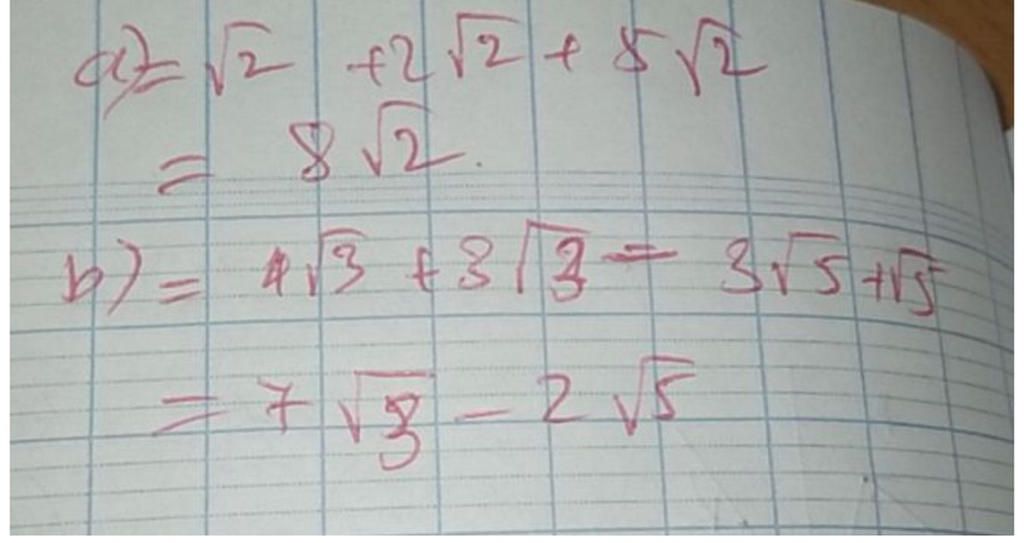 a) = √2 + 2√2 + 5√2
= 8√2.
b) = 4√3 + 3√3 - 3√5 + √5
= 7√3 - 2√5